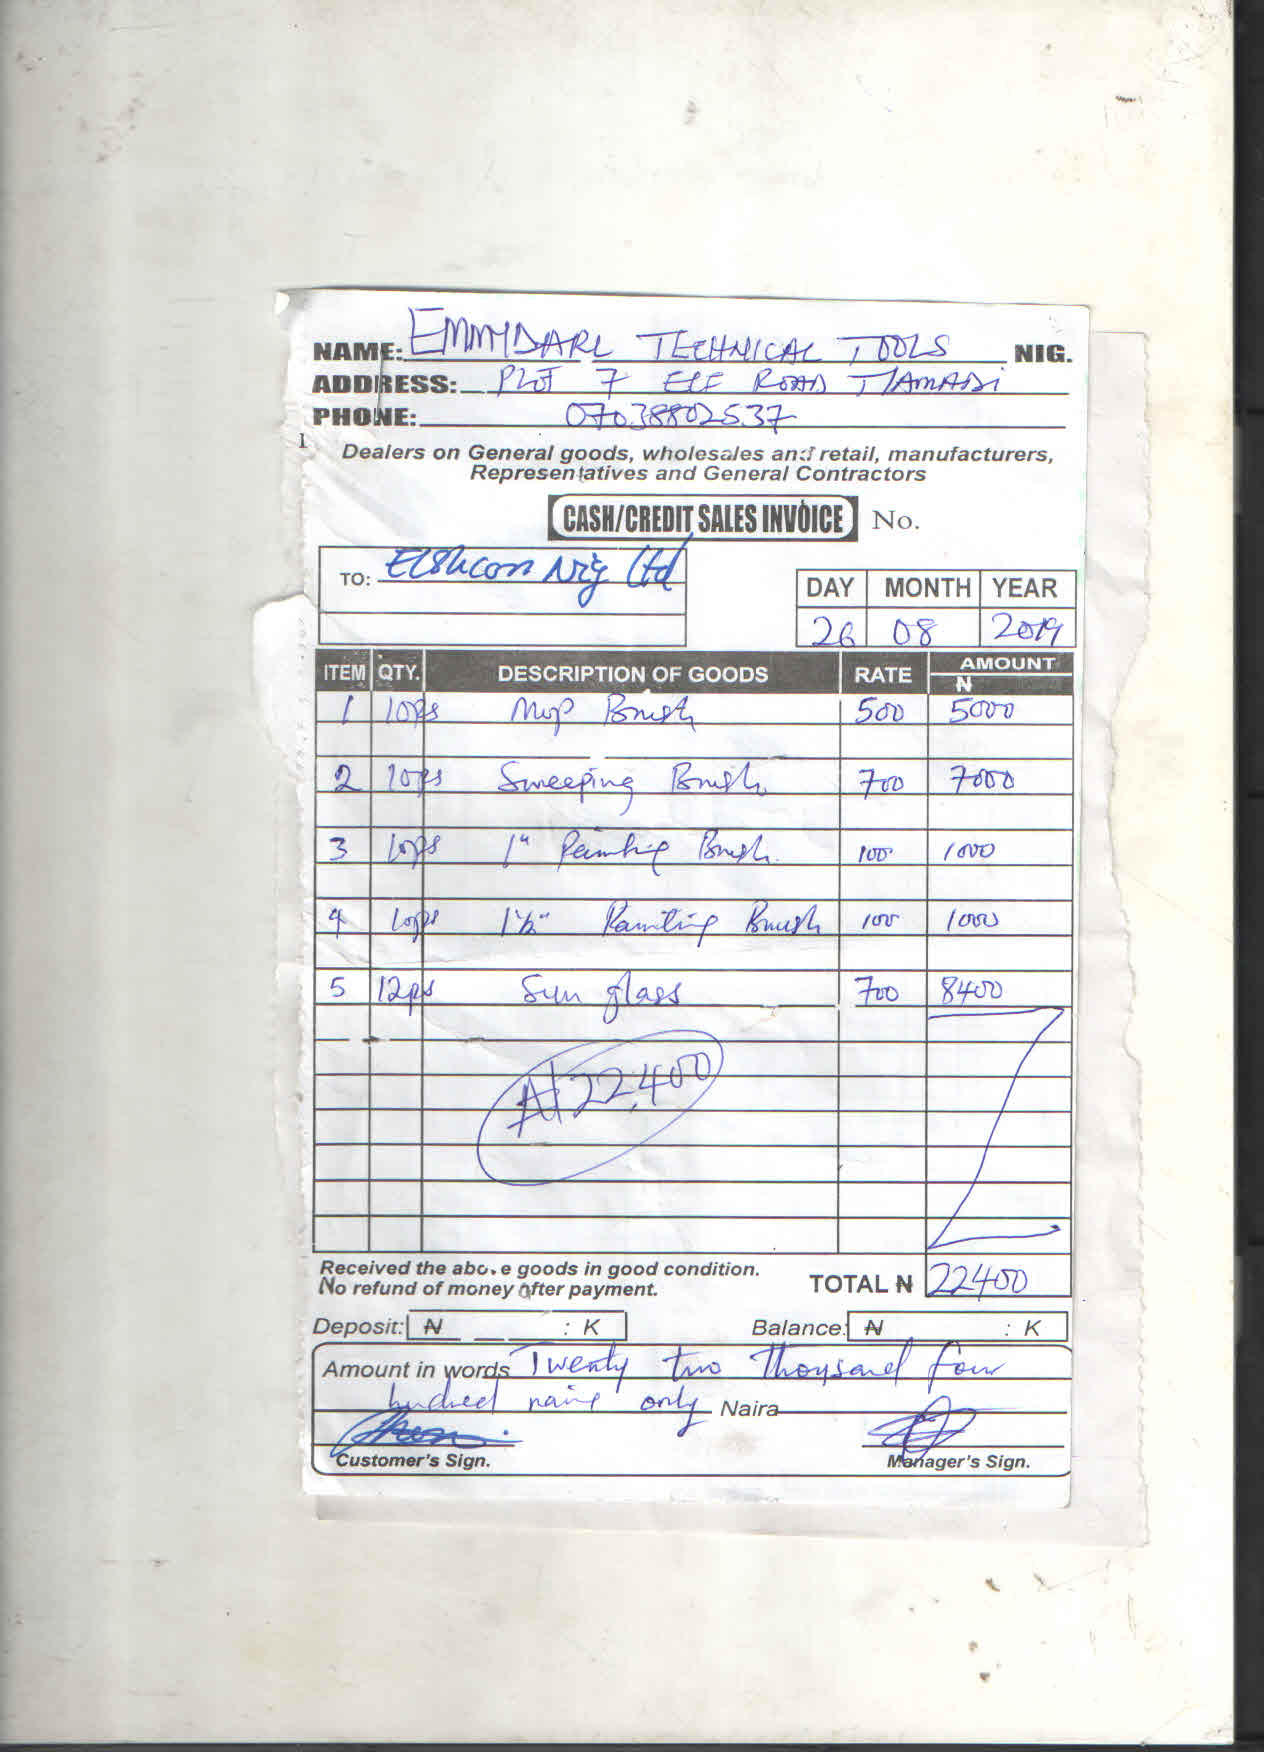 NAME: EMMYDARL TECHNICAL TOOLS NIG.
ADDRESS: PLOT 7 ELF ROAD T/AMADI
PHONE: 07038802537
Dealers on General goods, wholesales and retail, manufacturers,
Representatives and General Contractors
CASH/CREDIT SALES INVOICE No.
TO: Elshcon Nig Ltd
DAY MONTH YEAR
26 08 2019
ITEM QTY. DESCRIPTION OF GOODS RATE AMOUNT
₦
1 10ps Mop Brush 500 5000
2 10ps Sweeping Brush 700 7000
3 10ps 1" Painting Brush 100 1000
4 10ps 1½" Painting Brush 100 1000
5 12ps Sun glass 700 8400
₦22,400
Received the above goods in good condition.
No refund of money after payment.
TOTAL ₦ 22400
Deposit: ₦ : K Balance: ₦ : K
Amount in words Twenty two thousand four
hundred naira only Naira
Customer's Sign. Manager's Sign.